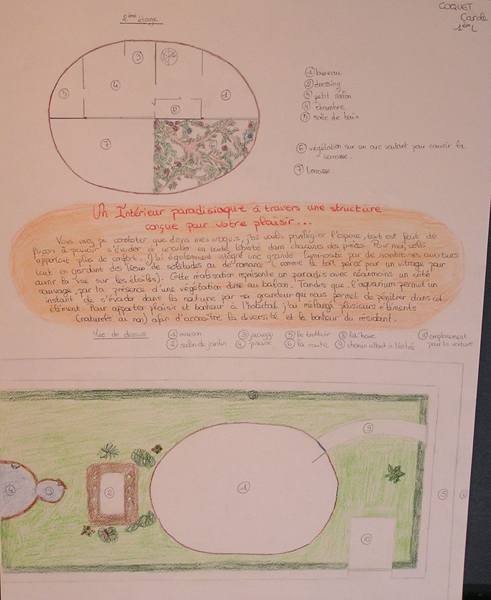 COQUET
Carole
1ère L
2ème étage
① bureau
② dressing
③ petit salon
④ chambre
⑤ salle de bain
⑥ végétation sur un arc voulant pour couvrir la
terrasse.
⑦ terrasse.
③
④
⑤
①
⑥
⑦
Un Intérieur paradisiaque à travers une structure
conçue pour votre plaisir...
Vous vous constater que dans mes croquis, j'ai voulu privilégier l'espace, tout est fait de
façon à pouvoir s'évader et circuler en toute liberté dans chacune des pièces. Pour moi, cela
apportait plus de confort. J'ai également intégré une grande luminosité par de nombreuses ouvertures
tout en gardant des lieux de solitudes ou de romance (comme le toit percé par un vitrage pour
ouvrir la vue sur les étoiles). Cette réalisation représente un paradis avec néanmoins un côté
sauvage par la présence d'une végétation dense au balcon. Tandis que l'aquarium permet un
instant de s'évader dans la nature par sa grandeur qui nous permet de pénétrer dans cet
élément. Pour apporter plaisir et bonheur à l'habitat j'ai mélangé plusieurs éléments
(naturels ou non) afin d'accroître la diversité et le bonheur du résident.
Vue de dessus
① maison
② salon de jardin
③ jacuzzi
④ piscine
⑤ le trottoir
⑥ la route
⑧ la haie
⑨ chemin allant à l'entrée
⑩ emplacement
pour la voiture
⑧
⑨
④
③
②
①
⑤
⑥
⑩